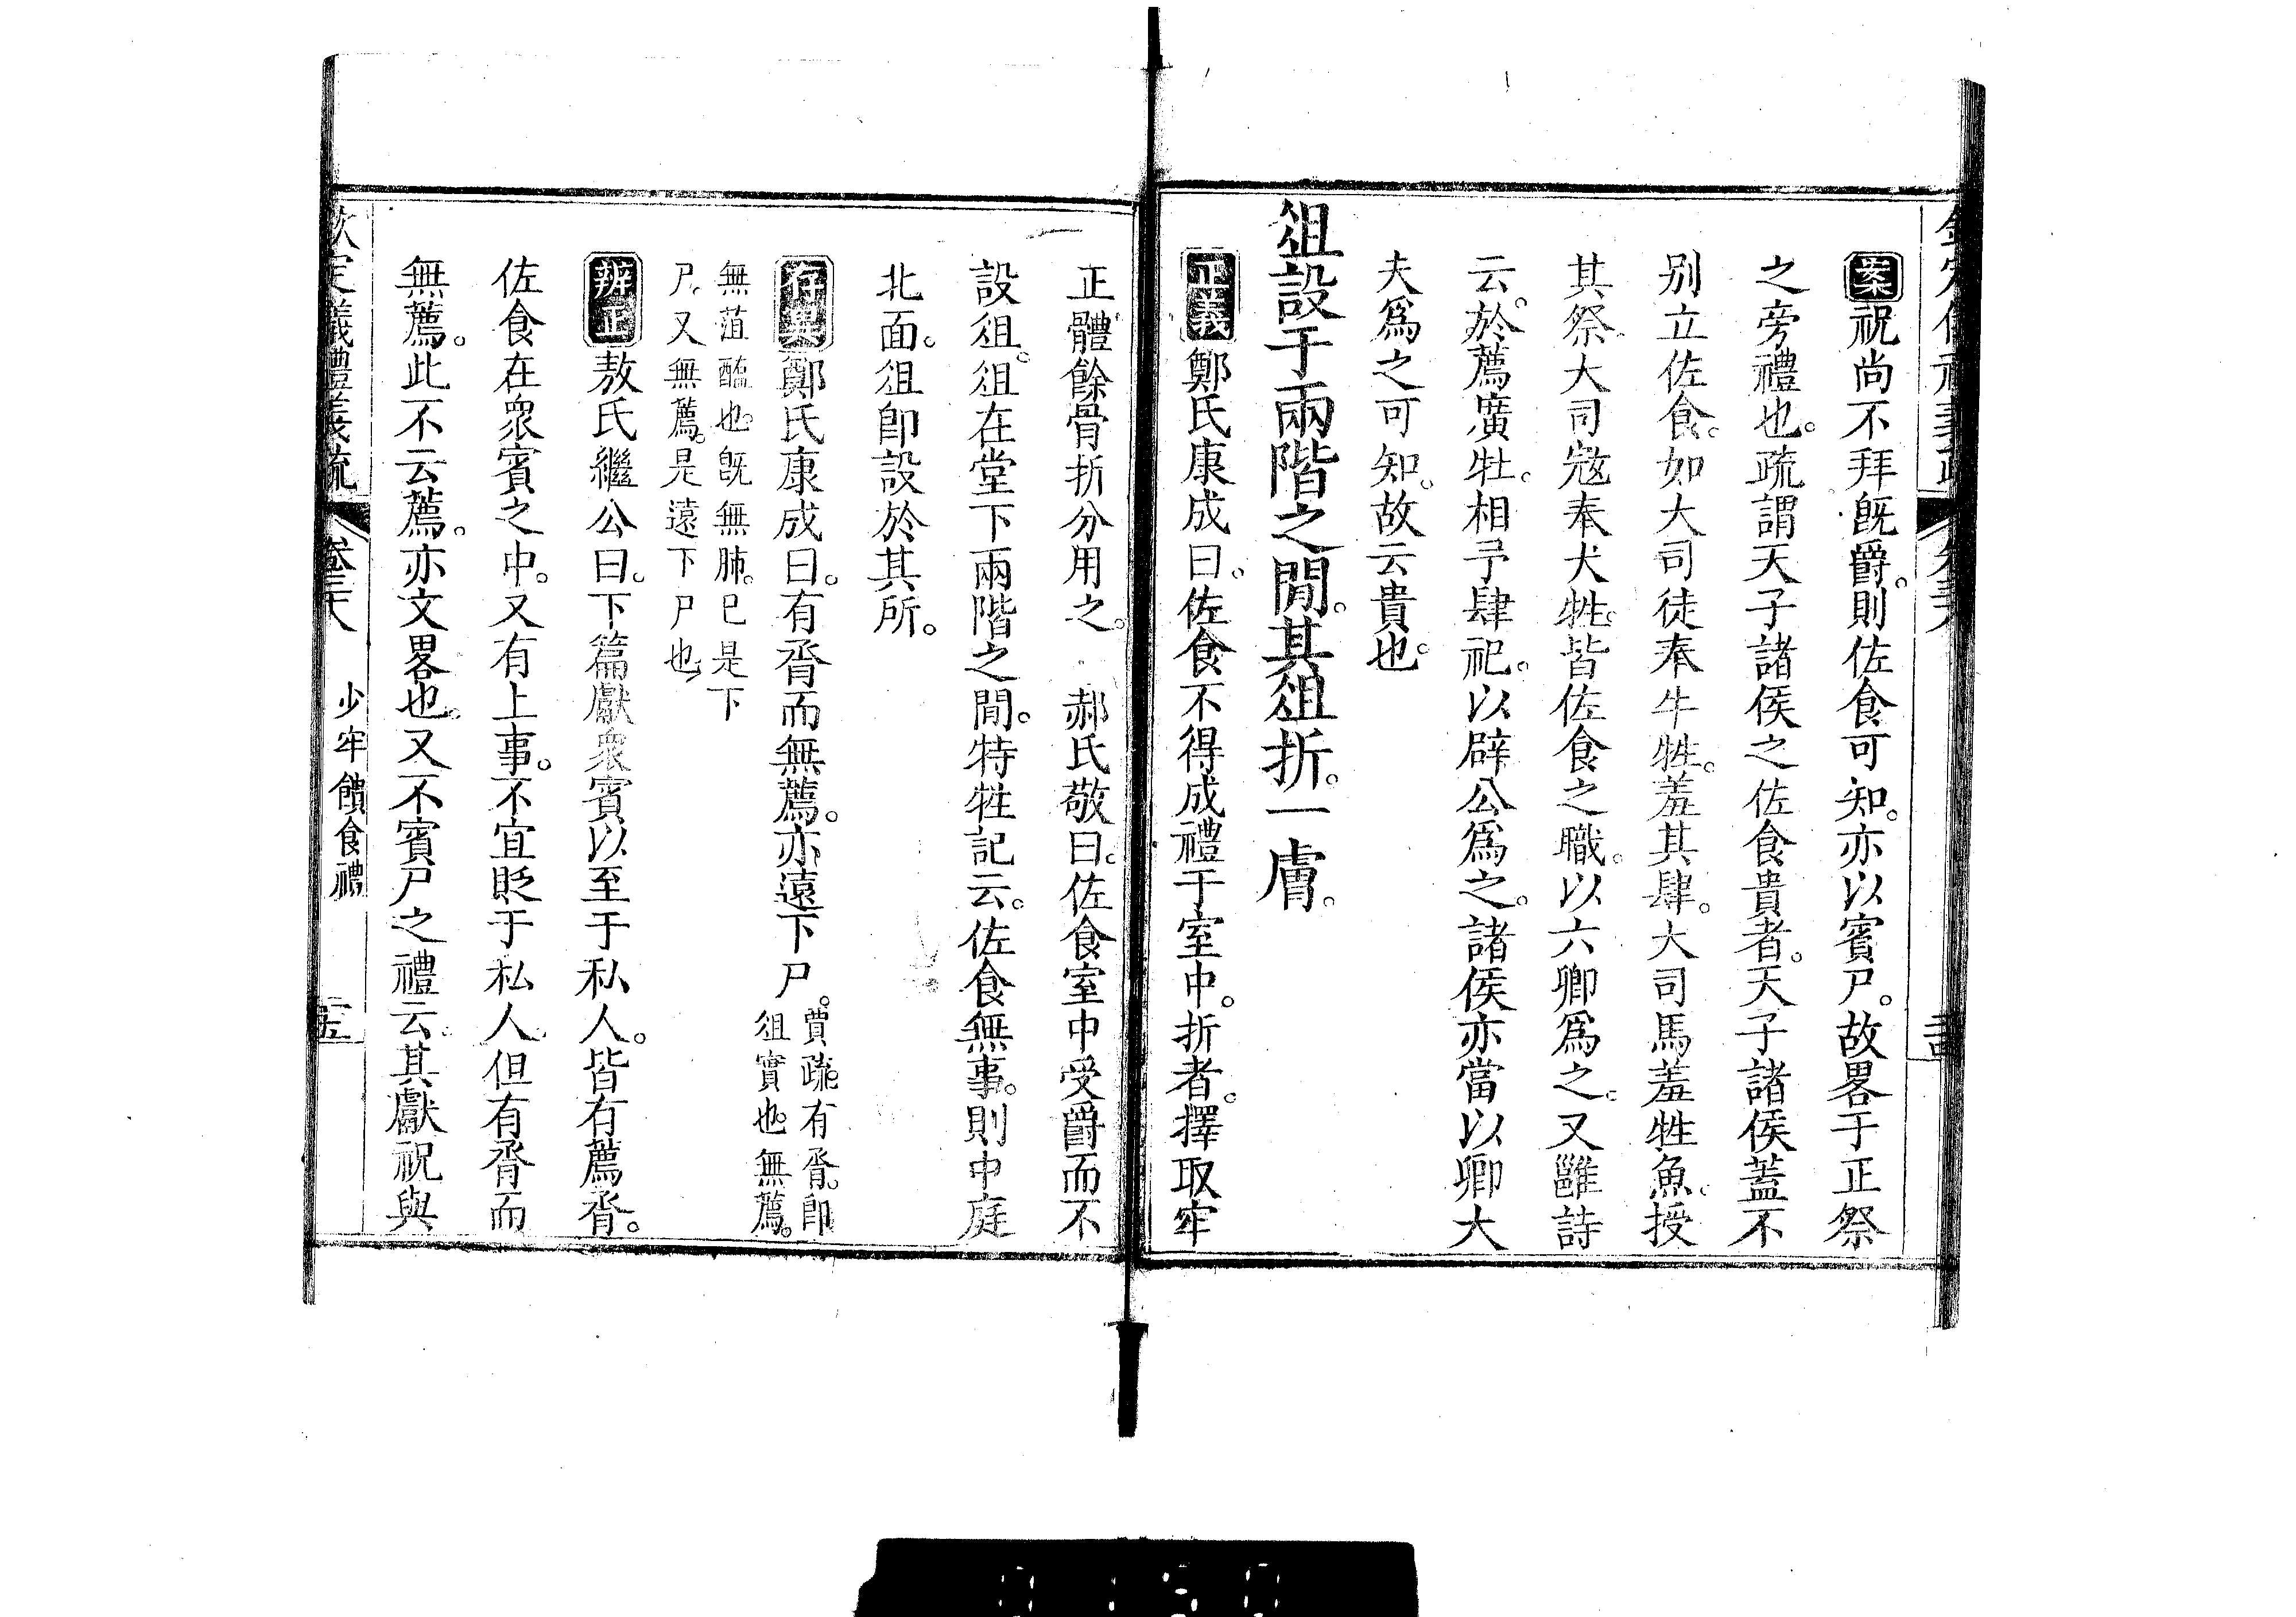 案祝尚不拜旣爵。則佐食可知。亦以賓尸。故畧于正祭
之旁禮也。疏謂天子諸侯之佐食貴者。天子諸侯蓋不
别立佐食。如大司徒奉牛牲。羞其肆。大司馬羞牲魚。授
其祭。大司寇奉犬牲。皆佐食之職。以六卿爲之。又雝詩
云。於薦廣牡。相予肆祀。以辟公爲之。諸侯亦當以卿大
夫爲之可知。故云貴也。
俎設于兩階之閒。其俎折。一膚。
正義鄭氏康成曰。佐食不得成禮于室中。折者。擇取牢
正體餘骨折分用之。 郝氏敬曰。佐食室中受爵而不
設俎。俎在堂下兩階之閒。特牲記云。佐食無事。則中庭
北面。俎卽設於其所。
存異鄭氏康成曰。有脀而無薦。亦遠下尸。賈疏。有脀。卽
俎實也。無薦。
無菹醢也。旣無肺。已是下
尸。又無薦。是遠下尸也。
辨正敖氏繼公曰。下篇獻衆賓以至于私人。皆有薦脀。
佐食在衆賓之中。又有上事。不宜貶于私人。但有脀而
無薦。此不云薦。亦文畧也。又不賓尸之禮云。其獻祝與
欽定儀禮義疏 卷三十八 少牢饋食禮